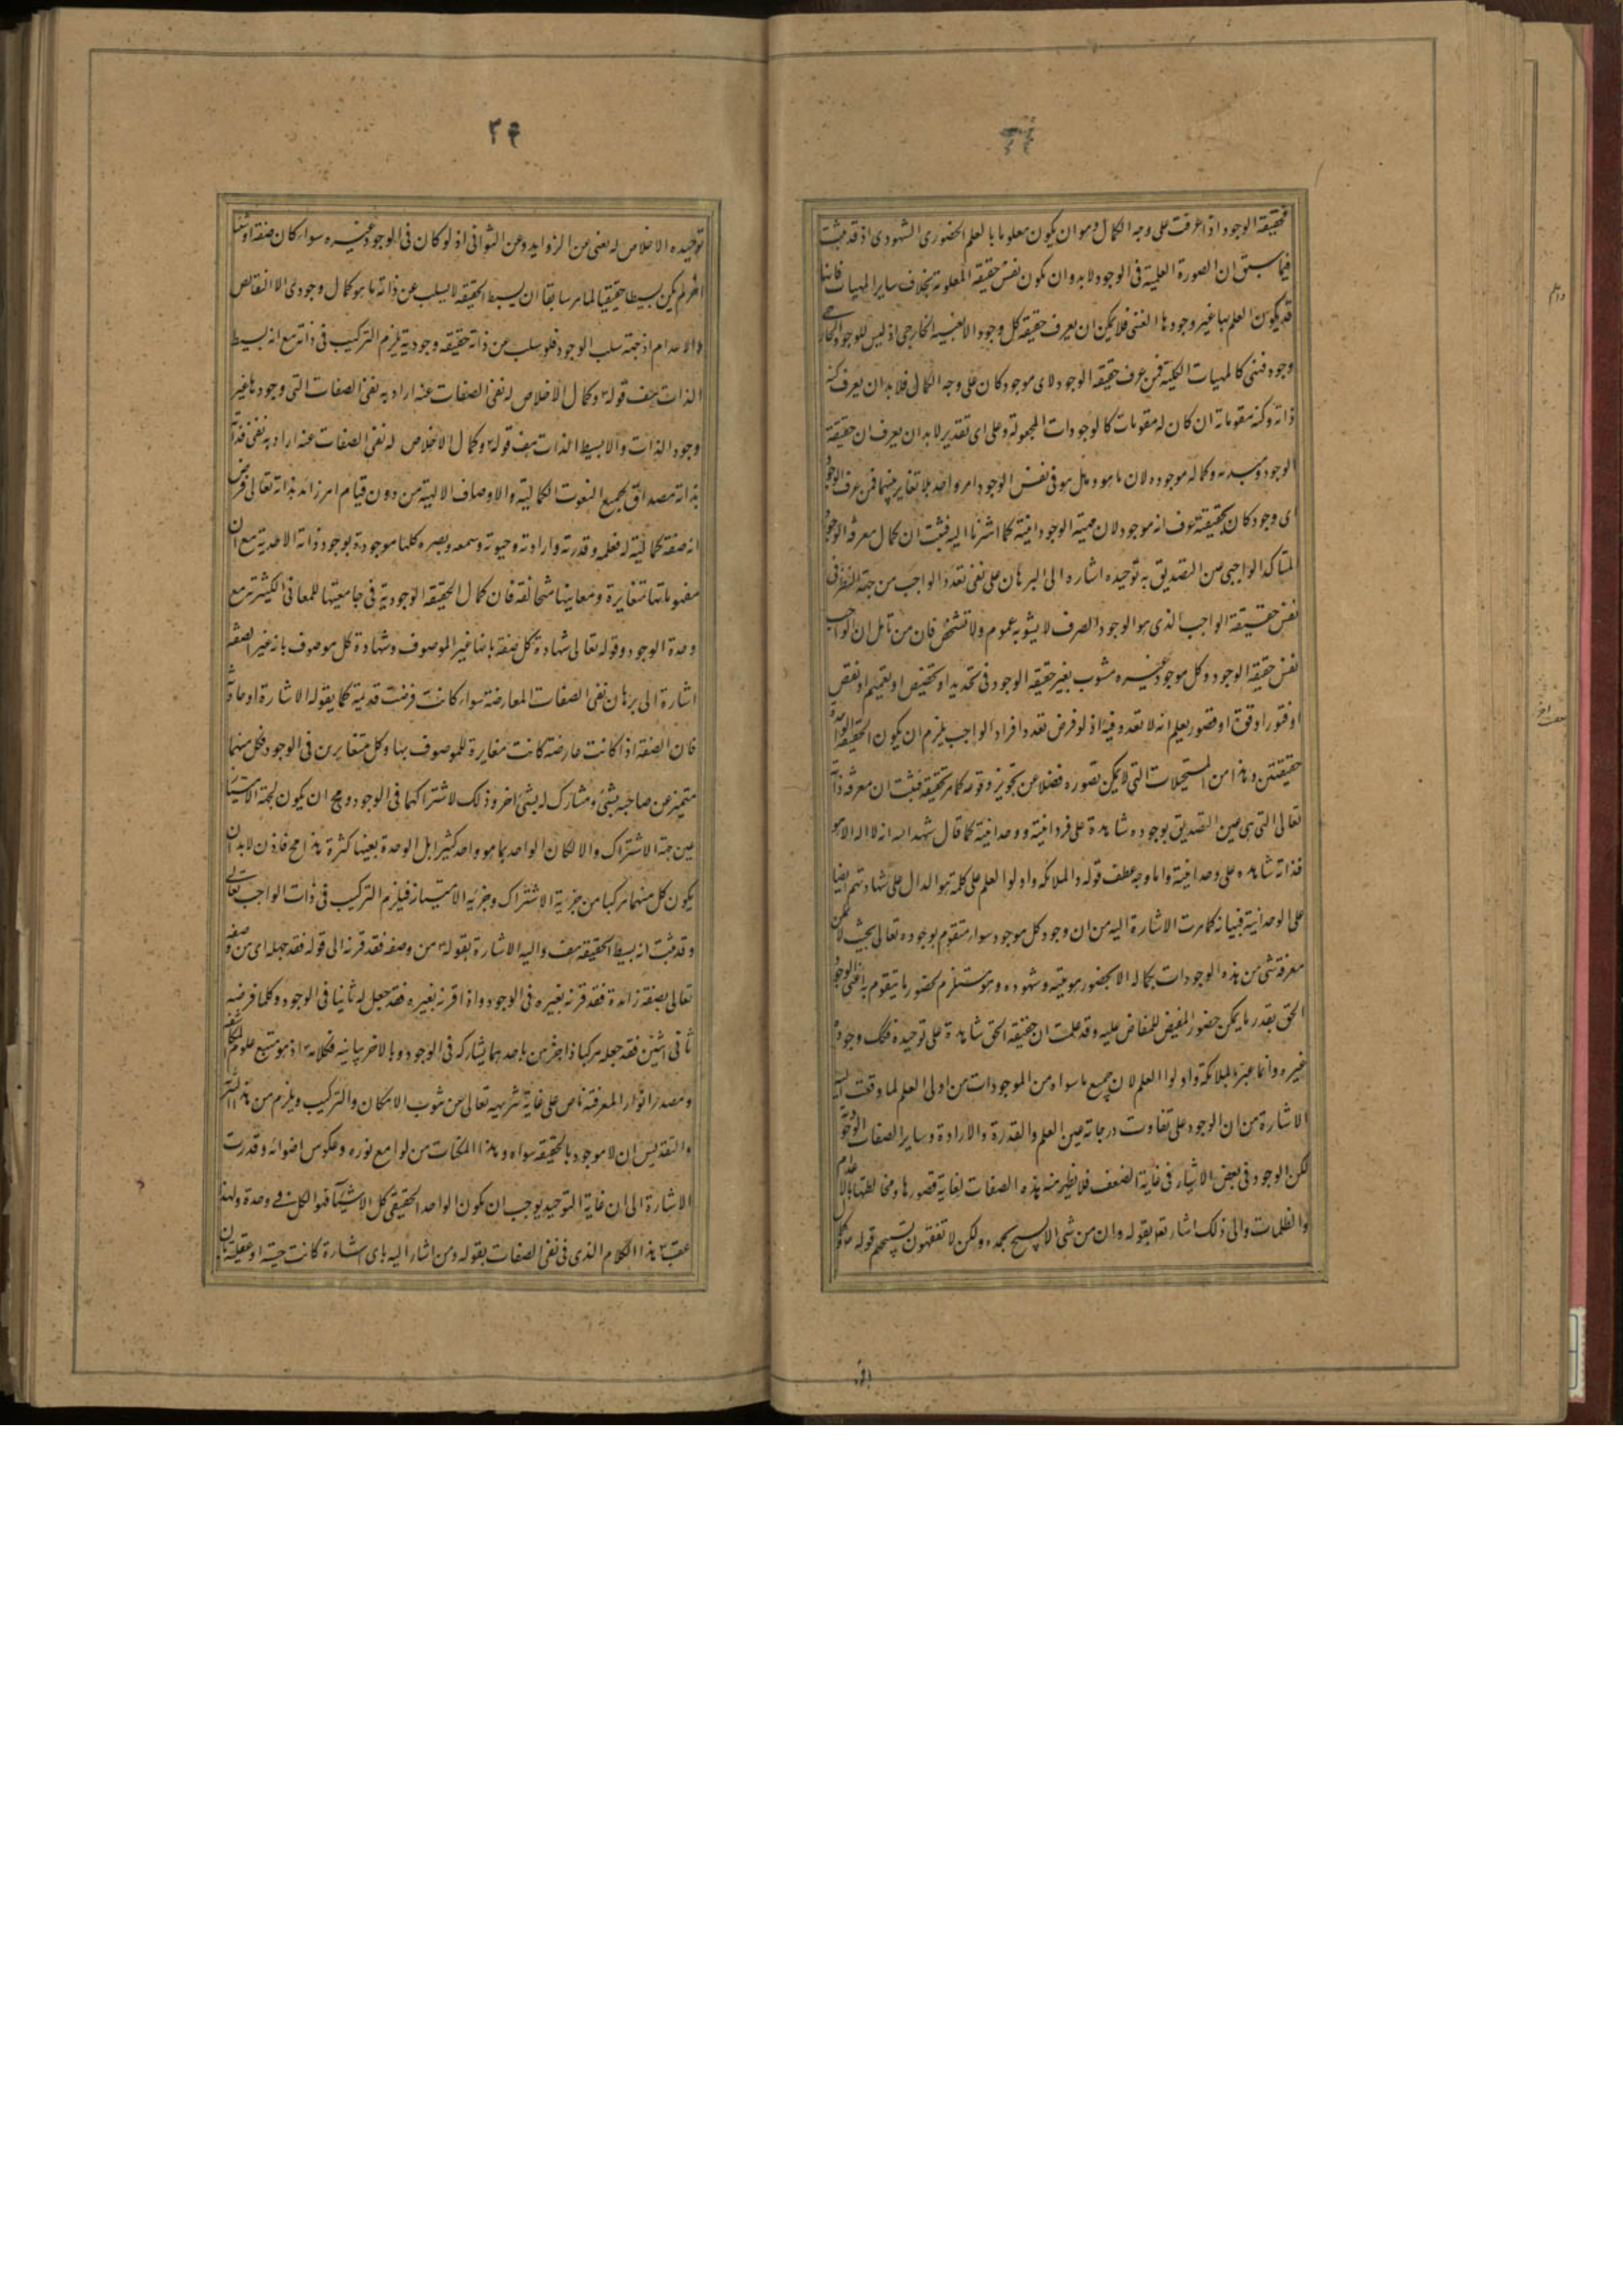 فحقيقة الوجود اذا عرفت على وجه الكمال وهو ان يكون معلوما بالعلم الحضورى الشهودى اذ قد ثبت
فيما سبق ان الصورة العلمية فى الوجود لابد وان تكون نفس حقيقة المعلوم بخلاف ساير المهيات فانها
قد يكون العلم بها غير وجودها العينى فلا يمكن ان يعرف حقيقة كل وجود الا بعينه الخارجى اذ ليس للوجود الخارجى
وجود ذهنى كالمهيات الكلية فمن عرف حقيقة الوجود لاى موجود كان على وجه الكمال فلابد ان يعرف كنه
ذاته وكنه مقوماته ان كان له مقومات كالوجودات المجعولة وعلى اى تقدير لابد ان يعرف ان حقيقة
الوجود ومبدءه وكماله موجوده لان ما هو وهل هو فى نفس الوجود امر واحد بلا تغاير بينهما فمن عرف الوجود
اى وجود كان بحقيقته عرف انه موجود لان مهية الوجود انيته كما اشرنا اليه فثبت ان كمال معرفة الوجود
المتاكد الواجبى عين التصديق به توحيده اشاره الى البرهان على نفى تعدد الواجب من جهة النظر فى
نفس حقيقة الواجب الذى هو الوجود الصرف لا يشوبه عموم ولا تشخص فان من تامل ان الواجب
نفس حقيقة الوجود وكل موجود غيره مشوب بغير حقيقة الوجود فى تحديد او تخصيص او تعميم او نقص
او فتور او قوة او قصور يعلم انه لا تعدد فيه اذ لو فرض تعدد افراد الواجب يلزم ان يكون الحقيقة الواحدة
حقيقتين وهذا من المستحيلات التى لا يمكن تصوره فضلا عن تجويز وقوعه كما مر تحقيقه فثبت ان معرفة ذاته
تعالى التى هى عين التصديق بوجوده شاهدة على فردانيته ووحدانيته كما قال شهد الله انه لا اله الا هو
فذاته شاهده على وحدانيته واما وجه عطف قوله والملائكة واولوا العلم على كلمة هو الدال على شهادتهم ايضا
على الوحدانية فبيانه كما مرت الاشارة اليه من ان وجود كل موجود سواه متقوم بوجوده تعالى بحيث لا يمكن
معرفة شى من هذه الوجودات بكماله الا بحضور هويته وشهوده وهو مستلزم لحضور ما يتقوم به اعنى الوجود
الحق بقدر ما يمكن حضور المفيض للمفاض عليه وقد علمت ان حقيقة الحق شاهدة على توحيده فكذلك وجود
غيره وانما عبر بالملائكة واولوا العلم لان جميع ما سواه من الموجودات من اولى العلم لما وقعت اليه
الاشارة من ان الوجود على تفاوت درجاته عين العلم والقدرة والارادة وساير الصفات الوجودية
لكن الوجود فى بعض الاشياء فى غاية الضعف فلا يظهر منه هذه الصفات لغاية قصورها ومخالطتها بالاعدام
والظلمات والى ذلك اشار تع بقوله وان من شى الا يسبح بحمده ولكن لا تفقهون تسبيحهم قوله وكمال
۳۴
توحيده الاخلاص له يعنى من الزوايد وعن الثوانى اذ لو كان فى الوجود غيره سواء كان صفة او شيئا
اخر لم يكن بسيطا حقيقيا لما مر سابقا ان بسيط الحقيقة لا يسلب عن ذاته ما هو كمال وجودى الا النقائص
والاعدام اذ جهة سلب الوجود فلو سلب عن ذاته حقيقة وجودية يلزم التركيب فى ذاته مع انه بسيط
الذات هف قوله ع وكمال الاخلاص له نفى الصفات عنه اراد به نفى الصفات التى وجودها غير
وجود الذات والا بسيط الذات هف قوله ع وكمال الاخلاص له نفى الصفات عنه اراد به نفى فذاته
بذاته مصداق لجميع النعوت الكمالية والاوصاف الالهية من دون قيام امر زائد بذاته تعالى فرض
انه صفة كمالية له فعلمه وقدرته وارادته وحيوته وسمعه وبصره كلها موجودة بوجود ذاته الاحدية مع ان
مفهوماتها متغايرة ومعانيها متخالفة فان كمال الحقيقة الوجودية فى جامعيتها للمعانى الكثيرة مع
وحدة الوجود وقوله تعالى شهادة كل صفة بانها غير الموصوف وشهادة كل موصوف بانه غير الصفة
اشارة الى برهان نفى الصفات العارضة سواء كانت فرضت قديمة كما يقوله الاشارة او حادثة
فان الصفة اذا كانت عارضة كانت مغايرة للموصوف بها وكل متغايرين فى الوجود فكل منهما
متميز عن صاحبه بشئ ومشارك له بشئ اخر وذلك لاشتراكهما فى الوجود ومح ان يكون جهة الامتياز
عين جهة الاشتراك والا لكان الواحد بما هو واحد كثيرا بل الوحدة بعينها كثرة هذا مح فاذن لابد ان
يكون كل منهما مركبا من جزء به الاشتراك وجزء به الامتياز فيلزم التركيب فى ذات الواجب تعالى
وقد ثبت انه بسيط الحقيقة هف واليه الاشارة بقوله ع من وصفه فقد قرنه الى قوله فقد جهله اى من وصفه
تعالى بصفة زائدة فقد قرنه بغيره فى الوجود واذا قرنه بغيره فقد جعل له ثانيا فى الوجود وكلما فرضه
ثانى اثنين فقد جعله مركبا ذا جزئين باحدهما يشاركه فى الوجود وبالاخر يباينه فكلامه ع اذ هو منبع علوم المكاشفة
ومصدر انوار المعرفة ناص على غاية تنزيهه تعالى عن شوب الامكان والتركيب ويلزم من هذا التنزيه
والتقديس ان لا موجود بالحقيقة سواه وهذا الممكنات من لوامع نوره وعكوس اضوائه وقد مرت
الاشارة الى ان غاية التوحيد يوجب ان يكون الواحد الحقيقى كل الاشياء فهو الكل فى وحدة ولهذا
عقب ع هذا الكلام الذى فى نفى الصفات بقوله ومن اشار اليه باى اشارة كانت حسية او عقلية بان